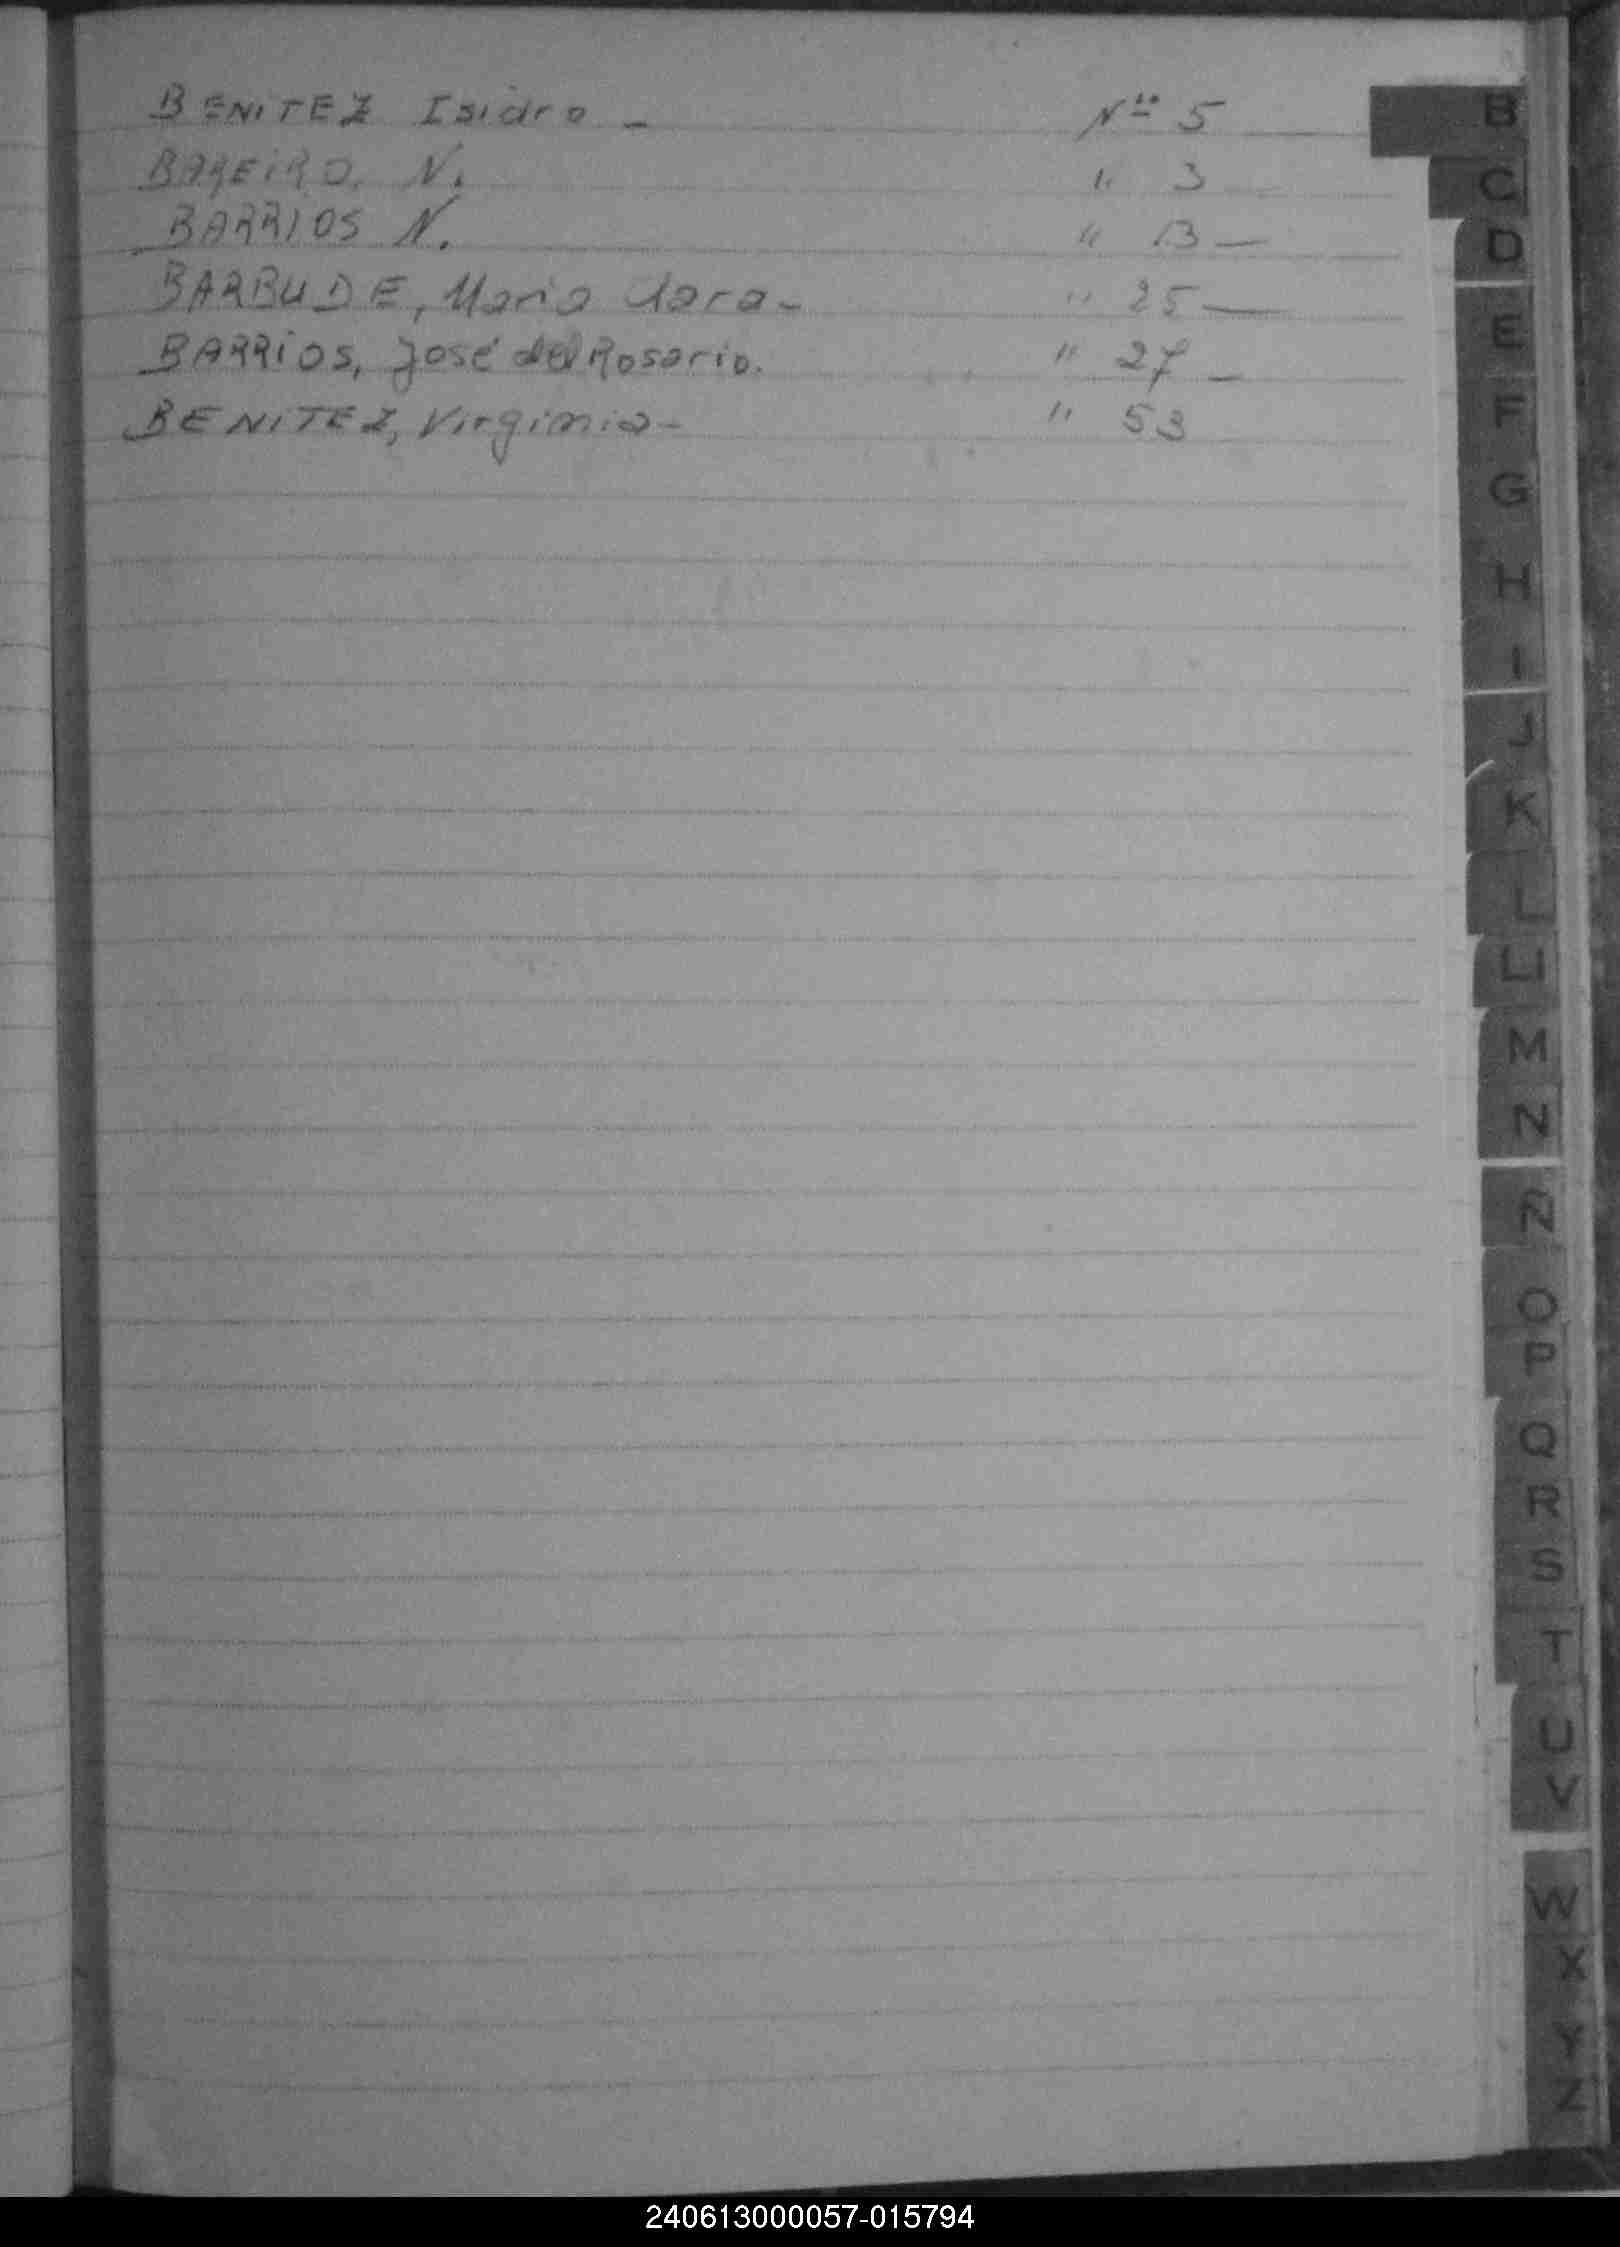 BENITEZ Isidro - Nº 5
BAREIRO, N. " 3
BARRIOS N. " 13 —
BARBUDE, Maria Clara - " 25 —
BARRIOS, José del Rosario. " 27 —
BENITEZ, Virginia - " 53
B
C
D
E
F
G
H
I
J
K
L
LL
M
N
Ñ
O
P
Q
R
S
T
U
V
W
X
Y
Z
240613000057-015794